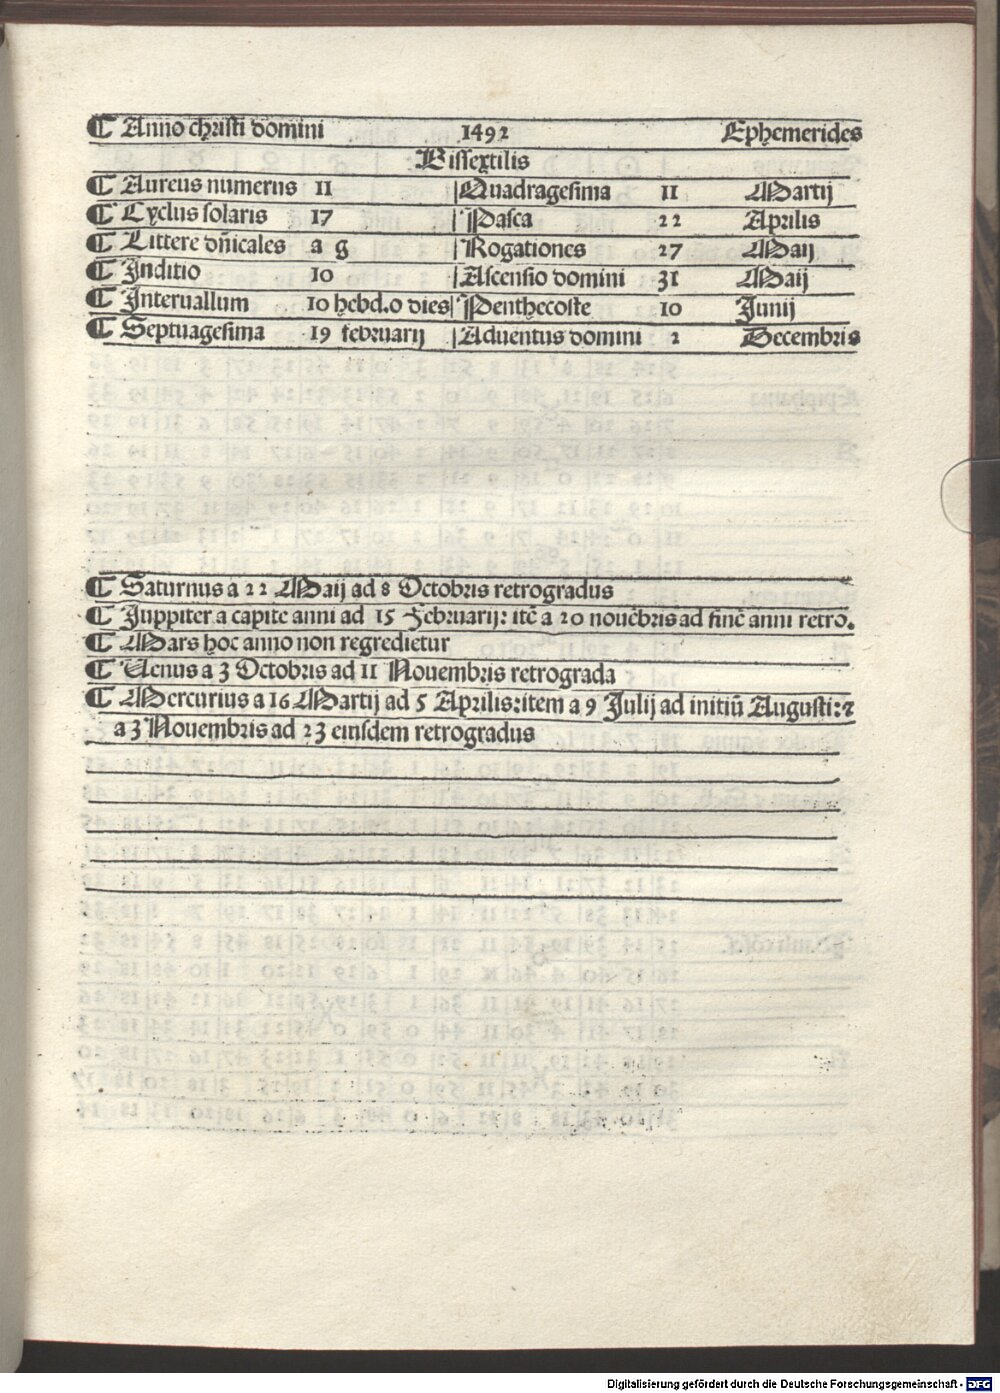 ¶ Anno christi domini 1492 Ephemerides
Bissextilis
¶ Aureus numerus 11 | Quadragesima 11 Martij
¶ Cyclus solaris 17 | Pasca 22 Aprilis
¶ Littere dn̄icales a g | Rogationes 27 Maij
¶ Inditio 10 | Ascensio domini 31 Maij
¶ Interuallum 10 hebd. 0 dies | Penthecoste 10 Junij
¶ Septuagesima 19 februarij | Aduentus domini 2 Decembris
¶ Saturnus a 22 Maij ad 8 Octobris retrogradus
¶ Juppiter a capite anni ad 15 Februarij: itē a 20 nouēbris ad finē anni retro.
¶ Mars hoc anno non regredietur
¶ Uenus a 3 Octobris ad 11 Nouembris retrograda
¶ Mercurius a 16 Martij ad 5 Aprilis: item a 9 Julij ad initiū Augusti: ⁊
a 3 Nouembris ad 23 eiusdem retrogradus
Digitalisierung gefördert durch die Deutsche Forschungsgemeinschaft - DFG